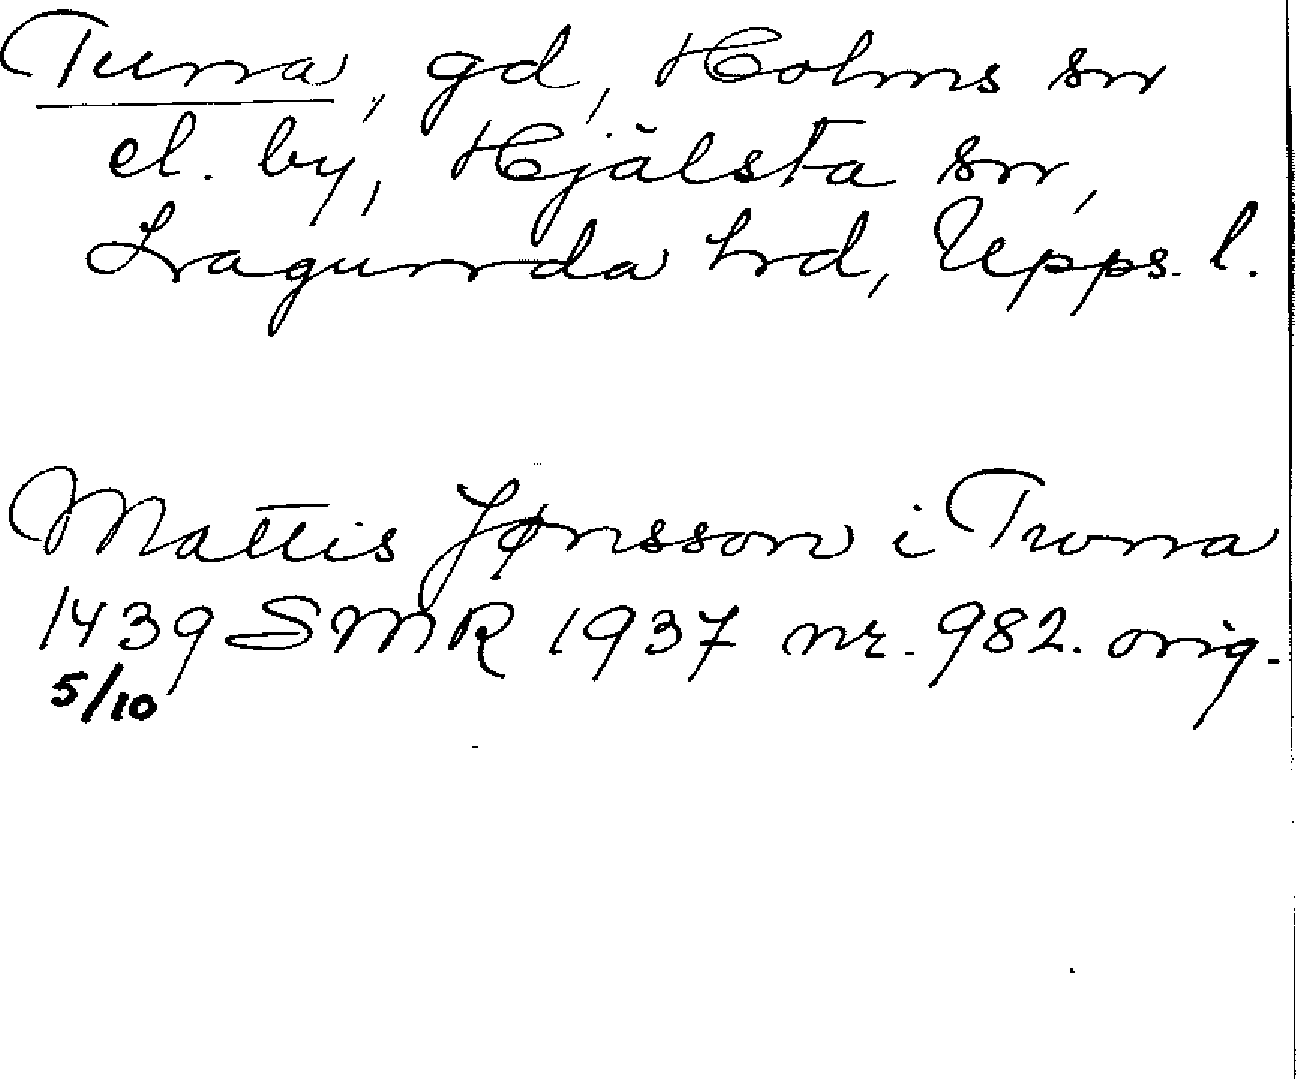 Tuna, gd, Holms sn
el. by, Hjälsta sn,
Lagunda hrd, Upps. l.
Mattis Jønsson i Twna
1439 SMR 1937 nr. 982. orig.
5/10